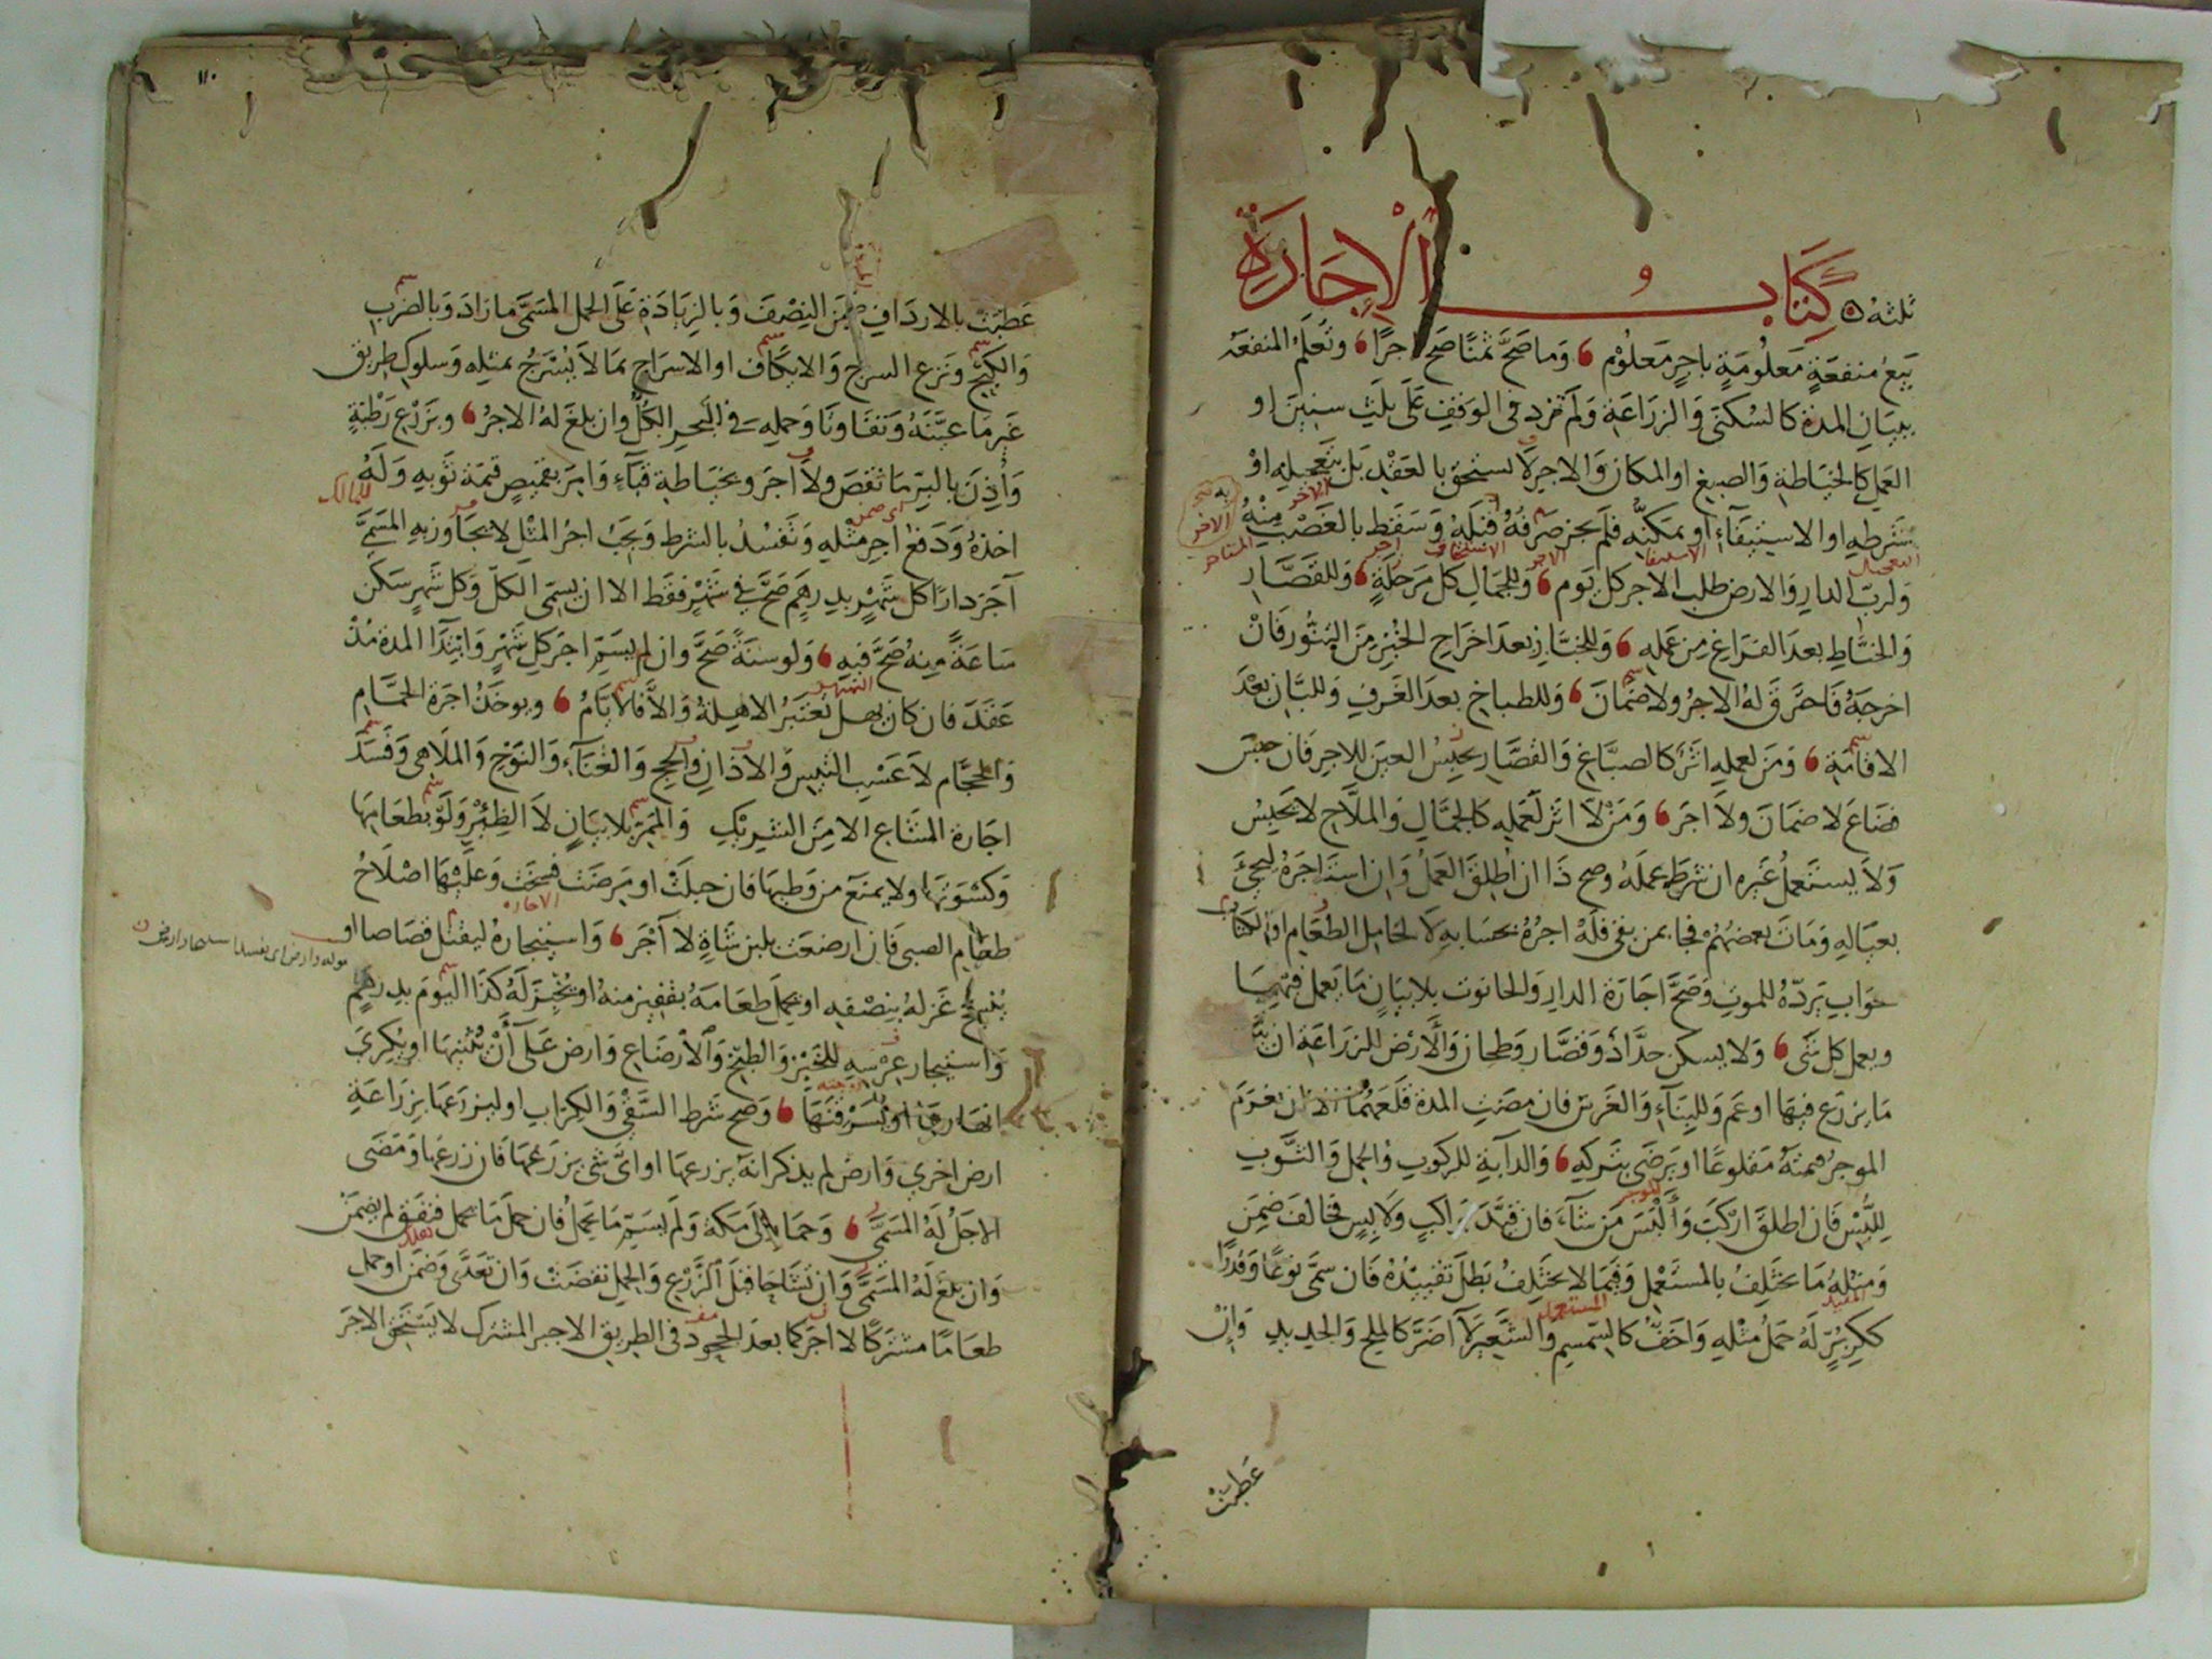 ثلثه ه كتاب الاجارة
بيع منفعة معلومة باجر معلوم وما صح ثمنا صح اجرا وتعلم المنفعة
ببيان المدة كالسكنى والزراعة ولم تزد في الوقف على ثلث سنين او
العمل كالخياطة والصبغ او المكان والاجر لا يستحق بالعقد بل بتعجيله او
بشرطه او الاستيفاء او تمكنه فلم يجز صرفه قبله وسقط بالغصب منه
ولرب الدار والارض طلب الاجر كل يوم وللجمال كل مرحلة وللقصار
والخياط بعد الفراغ من عمله وللخباز بعد اخراج الخبز من التنور فان
اخرجه فاحترق له الاجر ولا ضمان وللطباخ بعد الغرف وللبان بعد
الاقامة ومن لعمله اثر كالصباغ والقصار يحبس العين للاجر فان حبس
فضاع لا ضمان ولا اجر ومن لا اثر لعمله كالجمال والملاح لا يحبس
ولا يستعمل غيره ان شرط عمله وصح ذا ان اطلق العمل وان استاجره ليجئ
بعياله ومات بعضهم فجا بمن بقى فله اجره بحسابه لا لحامل الطعام او الكتاب
جواب برده للموت وصح اجارة الدار والحانوت بلا بيان ما يعمل فيها
ويعمل كل شى ولا يسكن حداد وقصار وطحان والارض للزراعة ان بين
ما يزرع فيها او عم وللبناء والغرس فان مضت المدة قلعهما الا ان يغرم
الموجر قيمته مقلوعا او يرضى بتركه والدابة للركوب والحمل والثوب
للبس فان اطلق اركب والبس من شاء فان قيد براكب ولابس فخالف ضمن
ومثله ما يختلف بالمستعمل وفيما لا يختلف بطل تقييده فان سمى نوعا وقدرا
ككر بر له حمل مثله واخف كالسمسم والشعير لا اضر كالملح والحديد وان
عطبت
١١٠
عطبت بالارداف ضمن النصف وبالزيادة على الحمل المسمى ما زاد وبالضرب
والكبح ونزع السرج والايكاف او الاسراج بما لا يسرج بمثله وسلوك طريق
غير ما عينه وتفاوتا وحمله فى البحر الكل وان بلغ له الاجر وبزرع رطبة
واذن بالبر ما نقص ولا اجر وبخياطة قباء وامر بقميص قيمة ثوبه وله
اخذه ودفع اجر مثله وتفسد بالشرط ويجب اجر المثل لا يجاوز به المسمى
آجر دارا كل شهر بدرهم صح فى شهر فقط الا ان يسمى الكل وكل شهر سكن
ساعة منه صح فيه ولو سنة صح وان لم يسم اجر كل شهر وابتدا المدة مذ
عقد فان كان يهل تعتبر الاهلة والا فالايام ويوخذ اجرة الحمام
والحجام لا عسب التيس والاذان والحج والغناء والنوح والملاهى وفسد
اجارة المشاع الا من الشريك والممر بلا بيان لا الظئر ولو بطعامها
وكسوتها ولا يمنع من وطيها فان حبلت او مرضت فسخت وعليها اصلاح
طعام الصبى فان ارضعت بلبن شاة لا اجر واستيجاره ليقتل قصاصا او
ينسج غزله بنصفه او يحمل طعامه بقفيز منه او يخبز له كذا اليوم بدرهم
واستيجار عرسه للخبز والطبخ والارضاع وارض على ان يثنيها او يكرى
انهارها او يسرقنها وصح شرط السقى والكراب او ليزرعها بزراعة
ارض اخرى وارض لم يذكر انه يزرعها او اى شى يزرعها فان زرعها ومضى
الاجل له المسمى وحمار الى مكة ولم يسم ما يحمل فان حمل ما يحمل فنفق لم يضمن
وان بلغ له المسمى وان تشاحا قبل الزرع والحمل نقضت وان تعدى وضمن او حمل
طعاما مشتركا لا اجر كما بعد الجحود فى الطريق الاجير المشترك لا يستحق الاجر